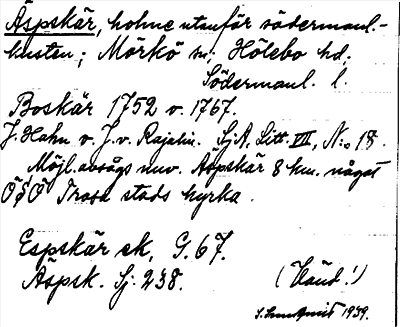 Äspskär, holme utanför södermanl.-
kusten; Mörkö sn. Hölebo hd,
Södermanl. l.
Boskär 1752 o. 1767.
J. Hahn o. J. v. Rajalin. SjA, Litt. VII, N:o 18.
Möjl. avsågs nuv. Äspskär 8 km. något
ÖSÖ Trosa stads kyrka.
Espskär ek, G. 67.
Äspsk. Sj: 238.
(Vänd!)
1939.